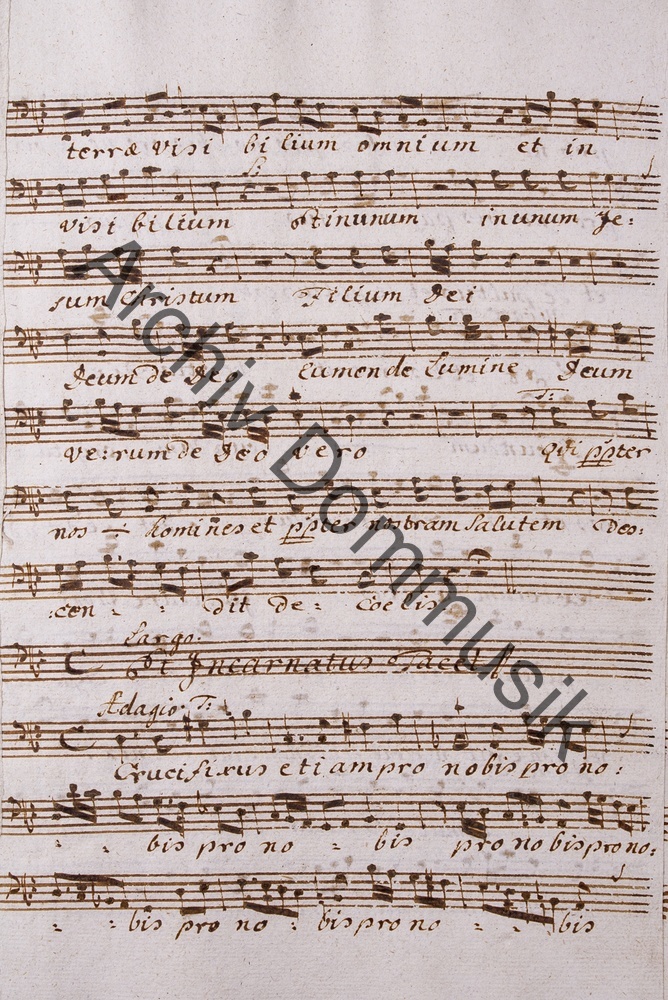 terræ visi bilium omnium et in
S:
visi bilium Et in unum in unum Je:
sum Christum Filium Dei
Deum de Deo Lumen de Lumine Deum
T:
ve: rum de Deo vero Qui ppter
nos — homines et ppter nostram Salutem Des:
:cen - - dit de: Coelis
Largo.
Et Incarnatus Tacet
Adagio. T:
Crucifixus etiam pro nobis pro no:
- - bis pro no - bis pro nobis pro no:
- - bis pro no - bis pro no - - bis
Archiv Dommusik